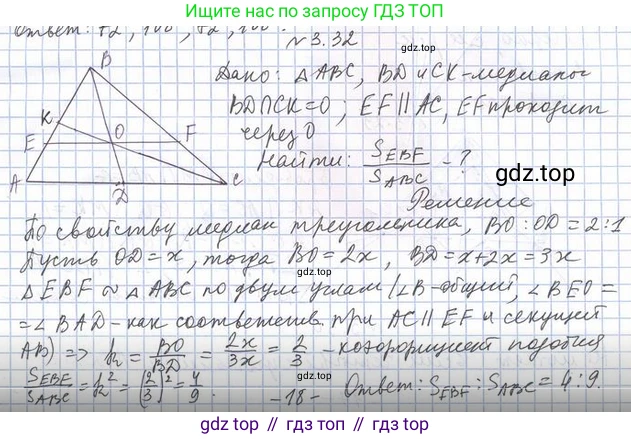 Ищите нас по запросу ГДЗ ТОП
Ответ: 72, 108, 72, 108.
№ 3.32
Дано: △ABC, BD и CK - медианы
BD∩CK=O; EF || AC, EF проходит
через O
Найти: S_EBF/S_ABC - ?
gdz.top
Решение
B
K
E
O
F
A
D
C
По свойству медиан треугольника, BO : OD = 2:1
Пусть OD = x, тогда BO = 2x, BD = x+2x = 3x
△EBF ~ △ABC по двум углам (∠B - общий, ∠BEO =
= ∠BAD - как соответств. при AC || EF и секущей
AB) => k = BO/BD = 2x/3x = 2/3 - коэффициент подобия
S_EBF/S_ABC = k² = (2/3)² = 4/9.
- 18 -
Ответ: S_EBF : S_ABC = 4:9.
gdz.top // gdz.top // gdz.top // gdz.top // gdz.top